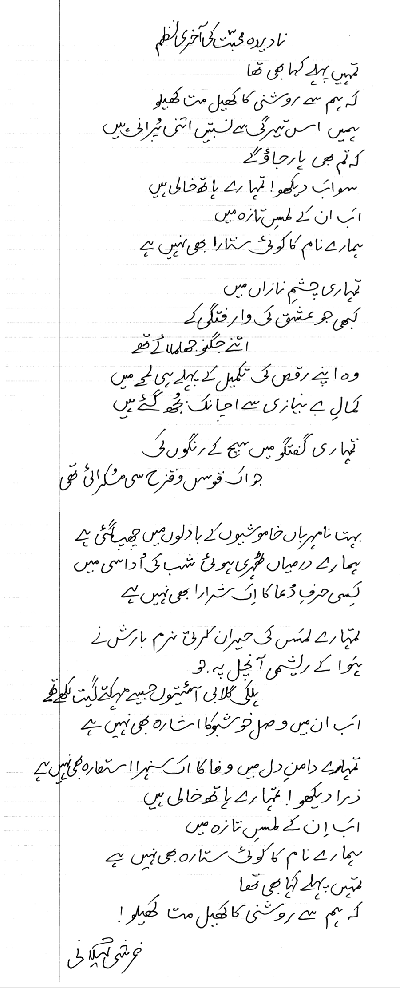 نادیدہ محبت کی آخری نظم
تمہیں پہلے کہا بھی تھا
کہ ہم سے روشنی کا کھیل مت کھیلو
ہمیں اس تیرگی سے نسبتیں اتنی پُرانی ہیں
کہ تم بھی ہار جاؤ گے
سو اب دیکھو! تمہارے ہاتھ خالی ہیں
اب ان کے لمسِ تازہ میں
ہمارے نام کا کوئی ستارا بھی نہیں ہے
تمہاری چشمِ نازاں میں
کبھی جو عشق کی وارفتگی کے
اتنے جگنو جھلملائے تھے
وہ اپنے رقص کی تکمیل کے پہلے ہی لمحے میں
کمالِ بے نیازی سے اچانک بُجھ گئے ہیں
تمہاری گفتگو میں سچ کے رنگوں کی
جو اک قوسِ و قزح سی مسکرائی تھی
بہت نامہرباں خاموشیوں کے بادلوں میں چھپ گئی ہے
ہمارے درمیاں ٹھہری ہوئی شب کی اُداسی میں
کسی حرفِ دُعا کا اِک شرارا بھی نہیں ہے
تمہارے لمس کی حیران کرتی نرم بارش نے
ہَوا کے ریشمی آنچل پہ جو
ہلکی گلابی آئیتوں جیسے مہکتے گیت لکھے تھے
اب ان میں وصلِ خوشبو کا اشارہ بھی نہیں ہے
تمہارے دامنِ دل میں وفا کا اک سنہرا استعارہ بھی نہیں ہے
ذرا دیکھو! تمہارے ہاتھ خالی ہیں
اب اِن کے لمسِ تازہ میں
ہمارے نام کا کوئی ستارہ بھی نہیں ہے
تمہیں پہلے کہا بھی تھا
کہ ہم سے روشنی کا کھیل مت کھیلو!